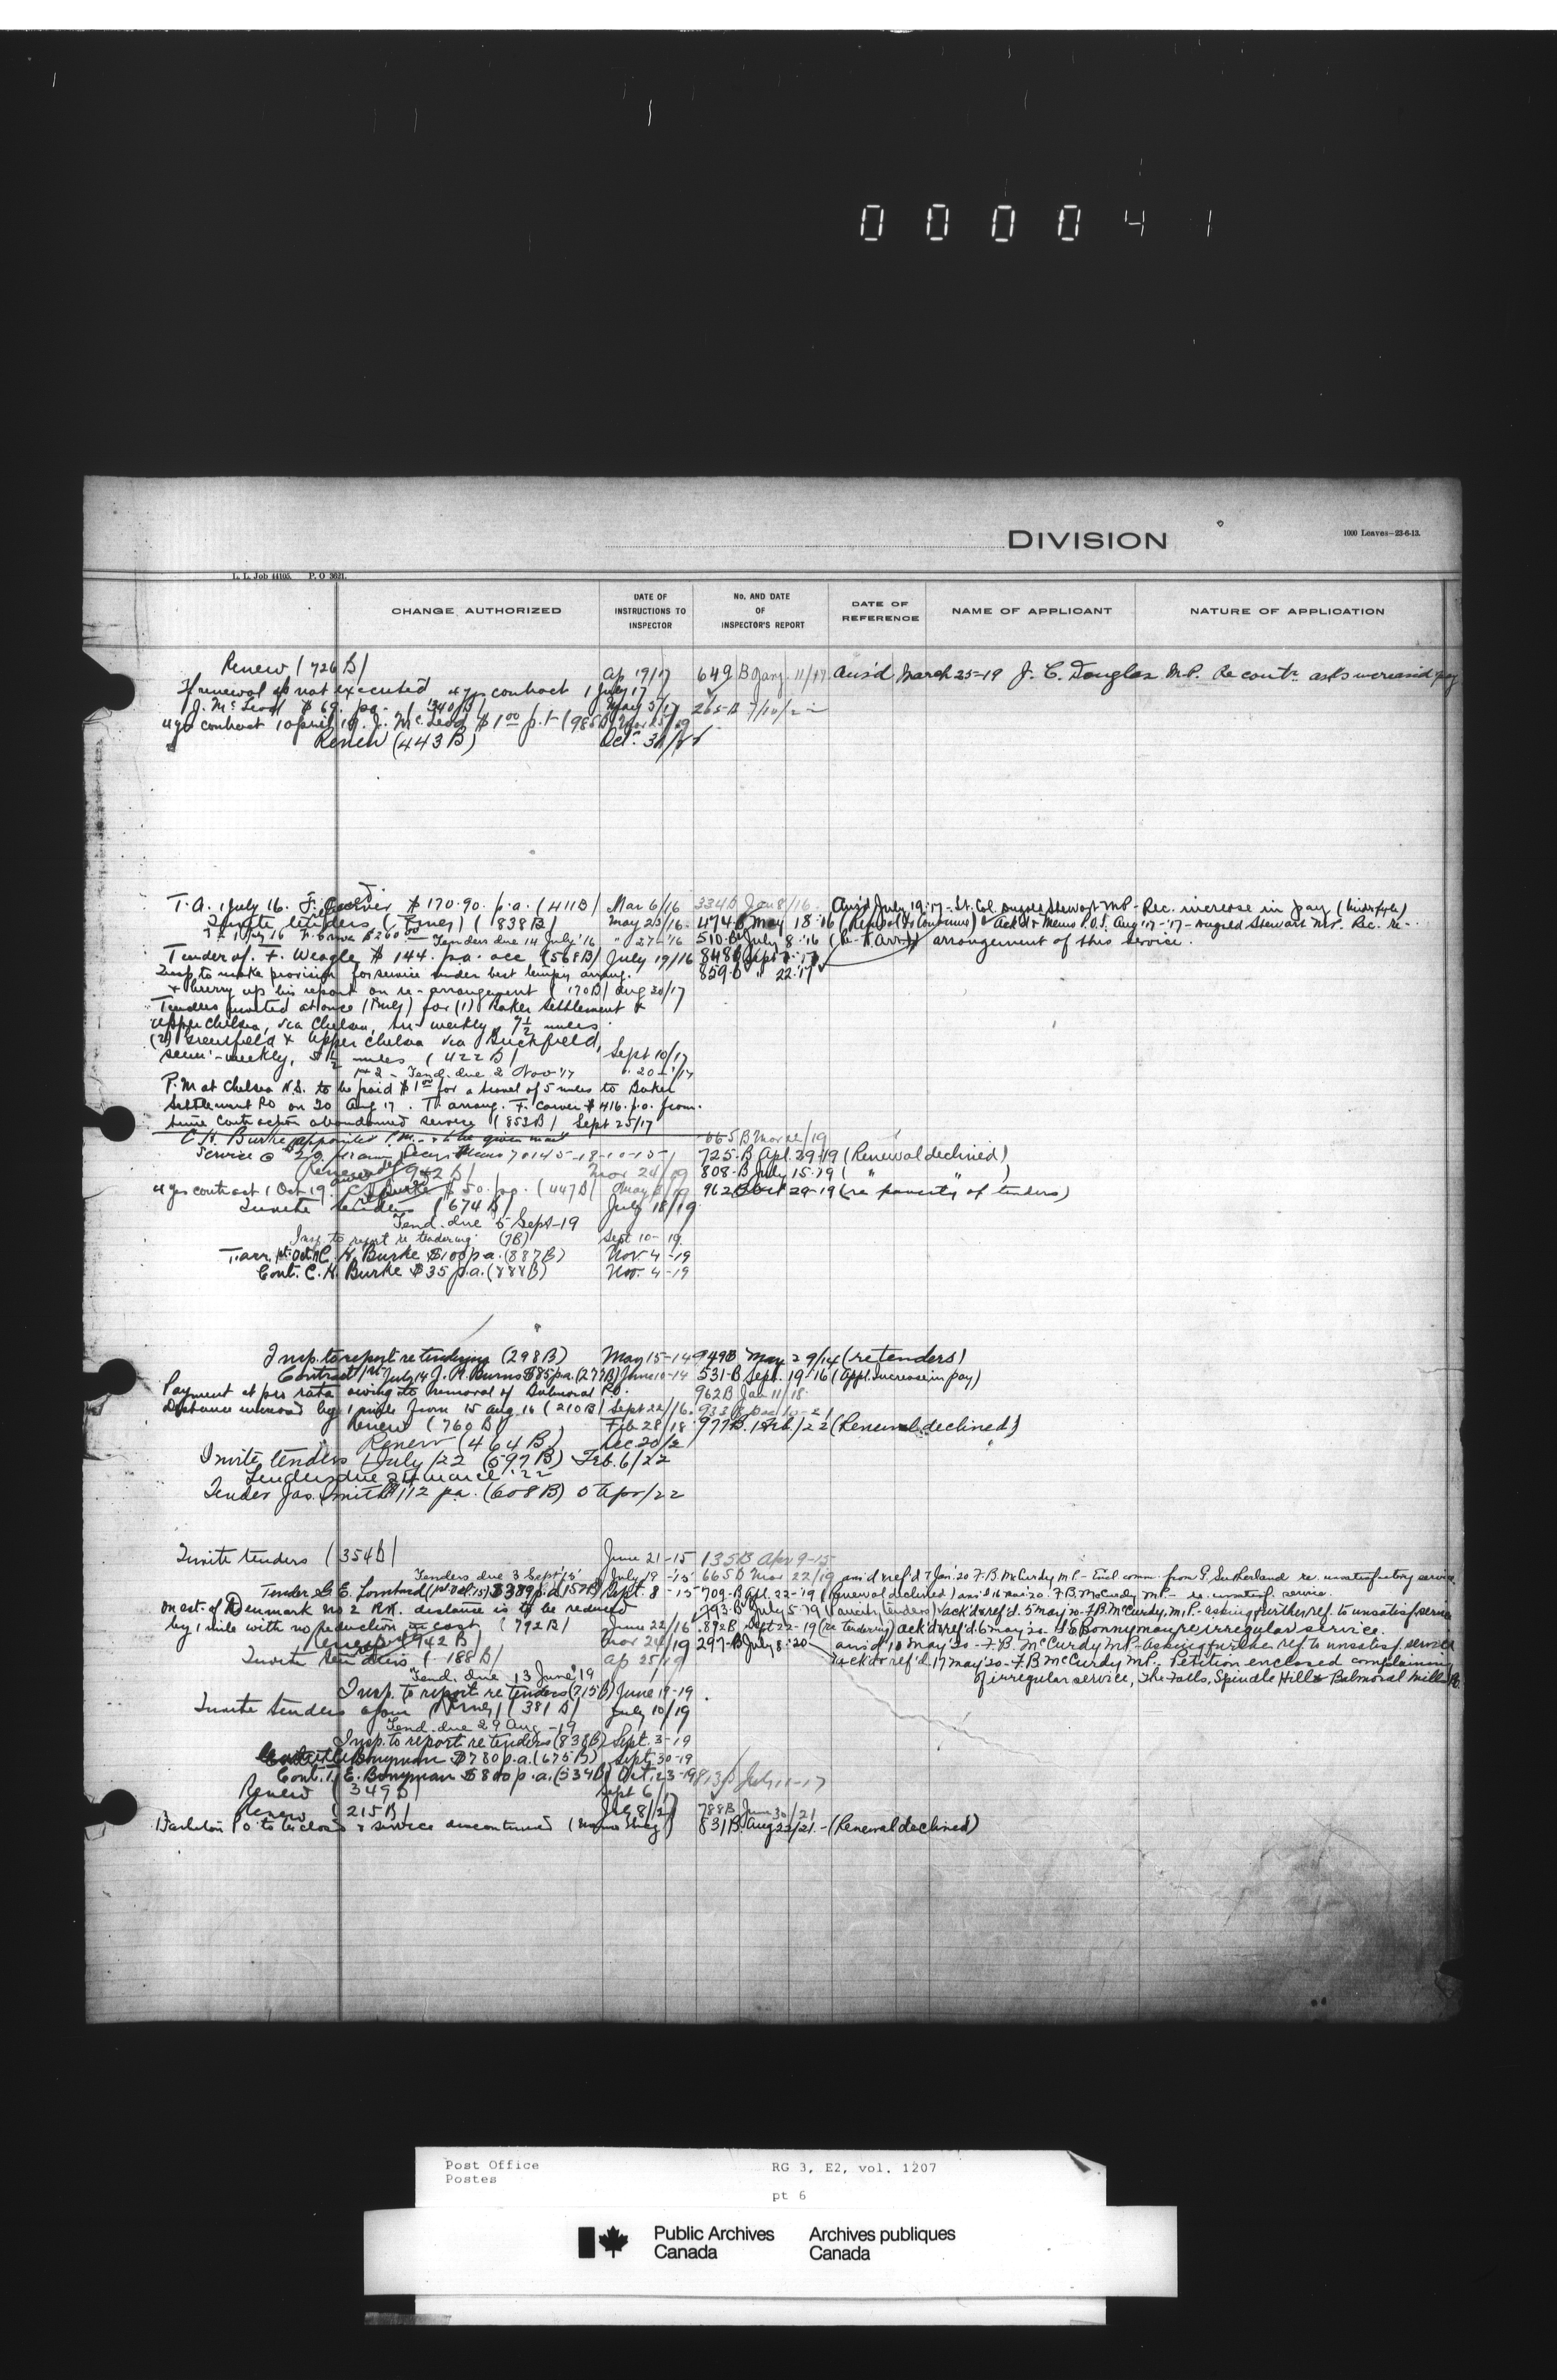 000041
DIVISION
1000 Leaves—23-6-13.
L. L. Job 44105. P. O 3621.
CHANGE AUTHORIZED
DATE OF INSTRUCTIONS TO INSPECTOR
No. AND DATE OF INSPECTOR'S REPORT
DATE OF REFERENCE
NAME OF APPLICANT
NATURE OF APPLICATION
Renew (726 B) Ap 19/17 649 B Jany 11/17 Ans'd March 25-19 J. C. Douglas M.P. Re contr. asks increased pay
If renewal is not executed 4 yr contract 1 July 17
J. McLeod $69. pa. (340 B) May 3/17 265-B
4 yr contract 1 April 19. J. McLeod $1.00 p.t. (985 B)
Renew (443 B) Oct. 31
T.A. 1 July 16. F. $170.90. p.a. (411B) Mar 6/16 334B Jan 8/16 Ans'd July 19.'17 - Lt. Col. Stewart M.P. - Rec. increase in pay
Invite tenders (838B) May 23/16. 474-B May 18.16 Ack'd & Memo P.O.S. Aug 17-'17 - Stewart M.P. Rec. re-
Tenders due 14 July '16 " 27-'16 510-B July 8.'16 arrangement of this service.
Tender of F. Weagle $144. p.a. acc (568B) July 19/16 848B Sept
Insp. to make provision for service under best temp'y arrang. 859-B " 22.17
& hurry up his report on re-arrangement (170B) Aug 20/17
Tenders invited at once for (1) Baker Settlement &
Upper Chelsea, via Chelsea, tri-weekly, 7½ miles.
(2) Greenfield & Upper Chelsea via Buckfield,
semi-weekly, 5½ miles (422B) Sept 10/17
1 & 2 - Tend. due 2 Nov '17 " 20-'17
P.M at Chelsea N.S. to be paid $1.00 for a travel of 5 miles to Baker
Settlement PO on 20 Aug 17. T. arrang. F. Carver $416. p.a. from
time contractor abandoned service (853B) Sept 25/17
C. H. Burke appointed P.M. - to be given mail 665 B Mar 22/19
725-B Apl. 29-19 (Renewal declined)
(942 B) Mar 24/19 808-B July 15-19 ( " " )
4 yr contract 1 Oct 19. C. H. Burke $50. pa. (447B) May 962B Oct 29-19 (re paucity of tenders)
Invite tenders (674 B) July 18/19
Tend. due 5 Sept-19
Insp. to report re tendering. (7B) Sept 10-19
T.arr. 1st Oct. 19 C. H. Burke $100 p.a. (887B) Nov. 4-19
Cont. C. H. Burke $35 p.a. (888B) Nov. 4-19
Insp. to report re tendering (298B) May 15-14 949B May 29/14 (re tenders)
Contract 1st July 14 J. A. Burns $85 p.a. (277B) June 10-14 531-B Sept. 19-16 (appl. increase in pay)
Payment at pro rata owing to removal of Balmoral P.O. 962B Jan 11/18
Distance increased by 1 mile from 15 Aug. 16 (210B) Sept 22/16. 933 B Dec 10-21
Renew (760 B) Feb 28/18 977B. 1 Feb/22 (Renewal declined)
Renew (464 B) Dec 20/21
Invite tenders 1 July /22 (597B) Feb. 6/22
Tenders due 24 March '22
Tender Jas. Smith $112 pa. (608B) 5 Apr/22
Invite tenders (354B) June 21-15 135B Apr 9-15
Tenders due 3 Sept '15 July 19-'15 665B Mar 22/19 ans'd & ref'd 7 Jan'20 F.B. McCurdy M.P. - Encl. comm. from Sutherland re. unsatisfactory service
Tender G. E. Lombard (1st Oct. 15) $389 p.a. (157B) Sept. 8-15 709-B Apl. 22-'19 (Renewal declined) ans'd 16 Mar '20. F.B. McCurdy M.P. - re. unsatisf. service.
On est. of Denmark No 2 R.R. distance is to be reduced 793-B July 5-19 ack'd & ref'd. 5 May 20 - F.B. McCurdy, M.P. - asking further ref. to unsatisf. service
by 1 mile with no reduction in cost (792B) June 22/16. 892B Sept 22-19 (re tendering) ack'd & ref'd. 6 May 20. Bonnyman re irregular service.
(942 B) Mar 24/19 297-B July 8.'20 ans'd 10 May '20 - F.B. McCurdy M.P. - asking further ref to unsatisf. service
Invite tenders (188B) Ap 25/19 ack'd & ref'd. 17 May '20 - F.B McCurdy M.P. - Petition enclosed complaining
Tend. due 13 June '19 of irregular service, The Falls, Spindle Hill & Balmoral Mills P.O.
Insp. to report re tenders (715B) June 19-19.
Invite tenders again (381 B) July 10/19
Tend. due 29 Aug.-19
Insp. to report re tenders (838B) Sept. 3-19
Bonyman $780 p.a. (675B) Sept. 30-19
Cont. T. E. Bonyman $800 p.a. (534B) Oct. 23-19
Renew (349B) Sept 6/17 July 11-17
Renew (215B) July 8/21 788B June 30/21
P.O. to be closed & service discontinued 831B. Aug 22/21. - (Renewal declined)
Post Office
Postes
RG 3, E2, vol. 1207
pt 6
Public Archives Canada
Archives publiques Canada